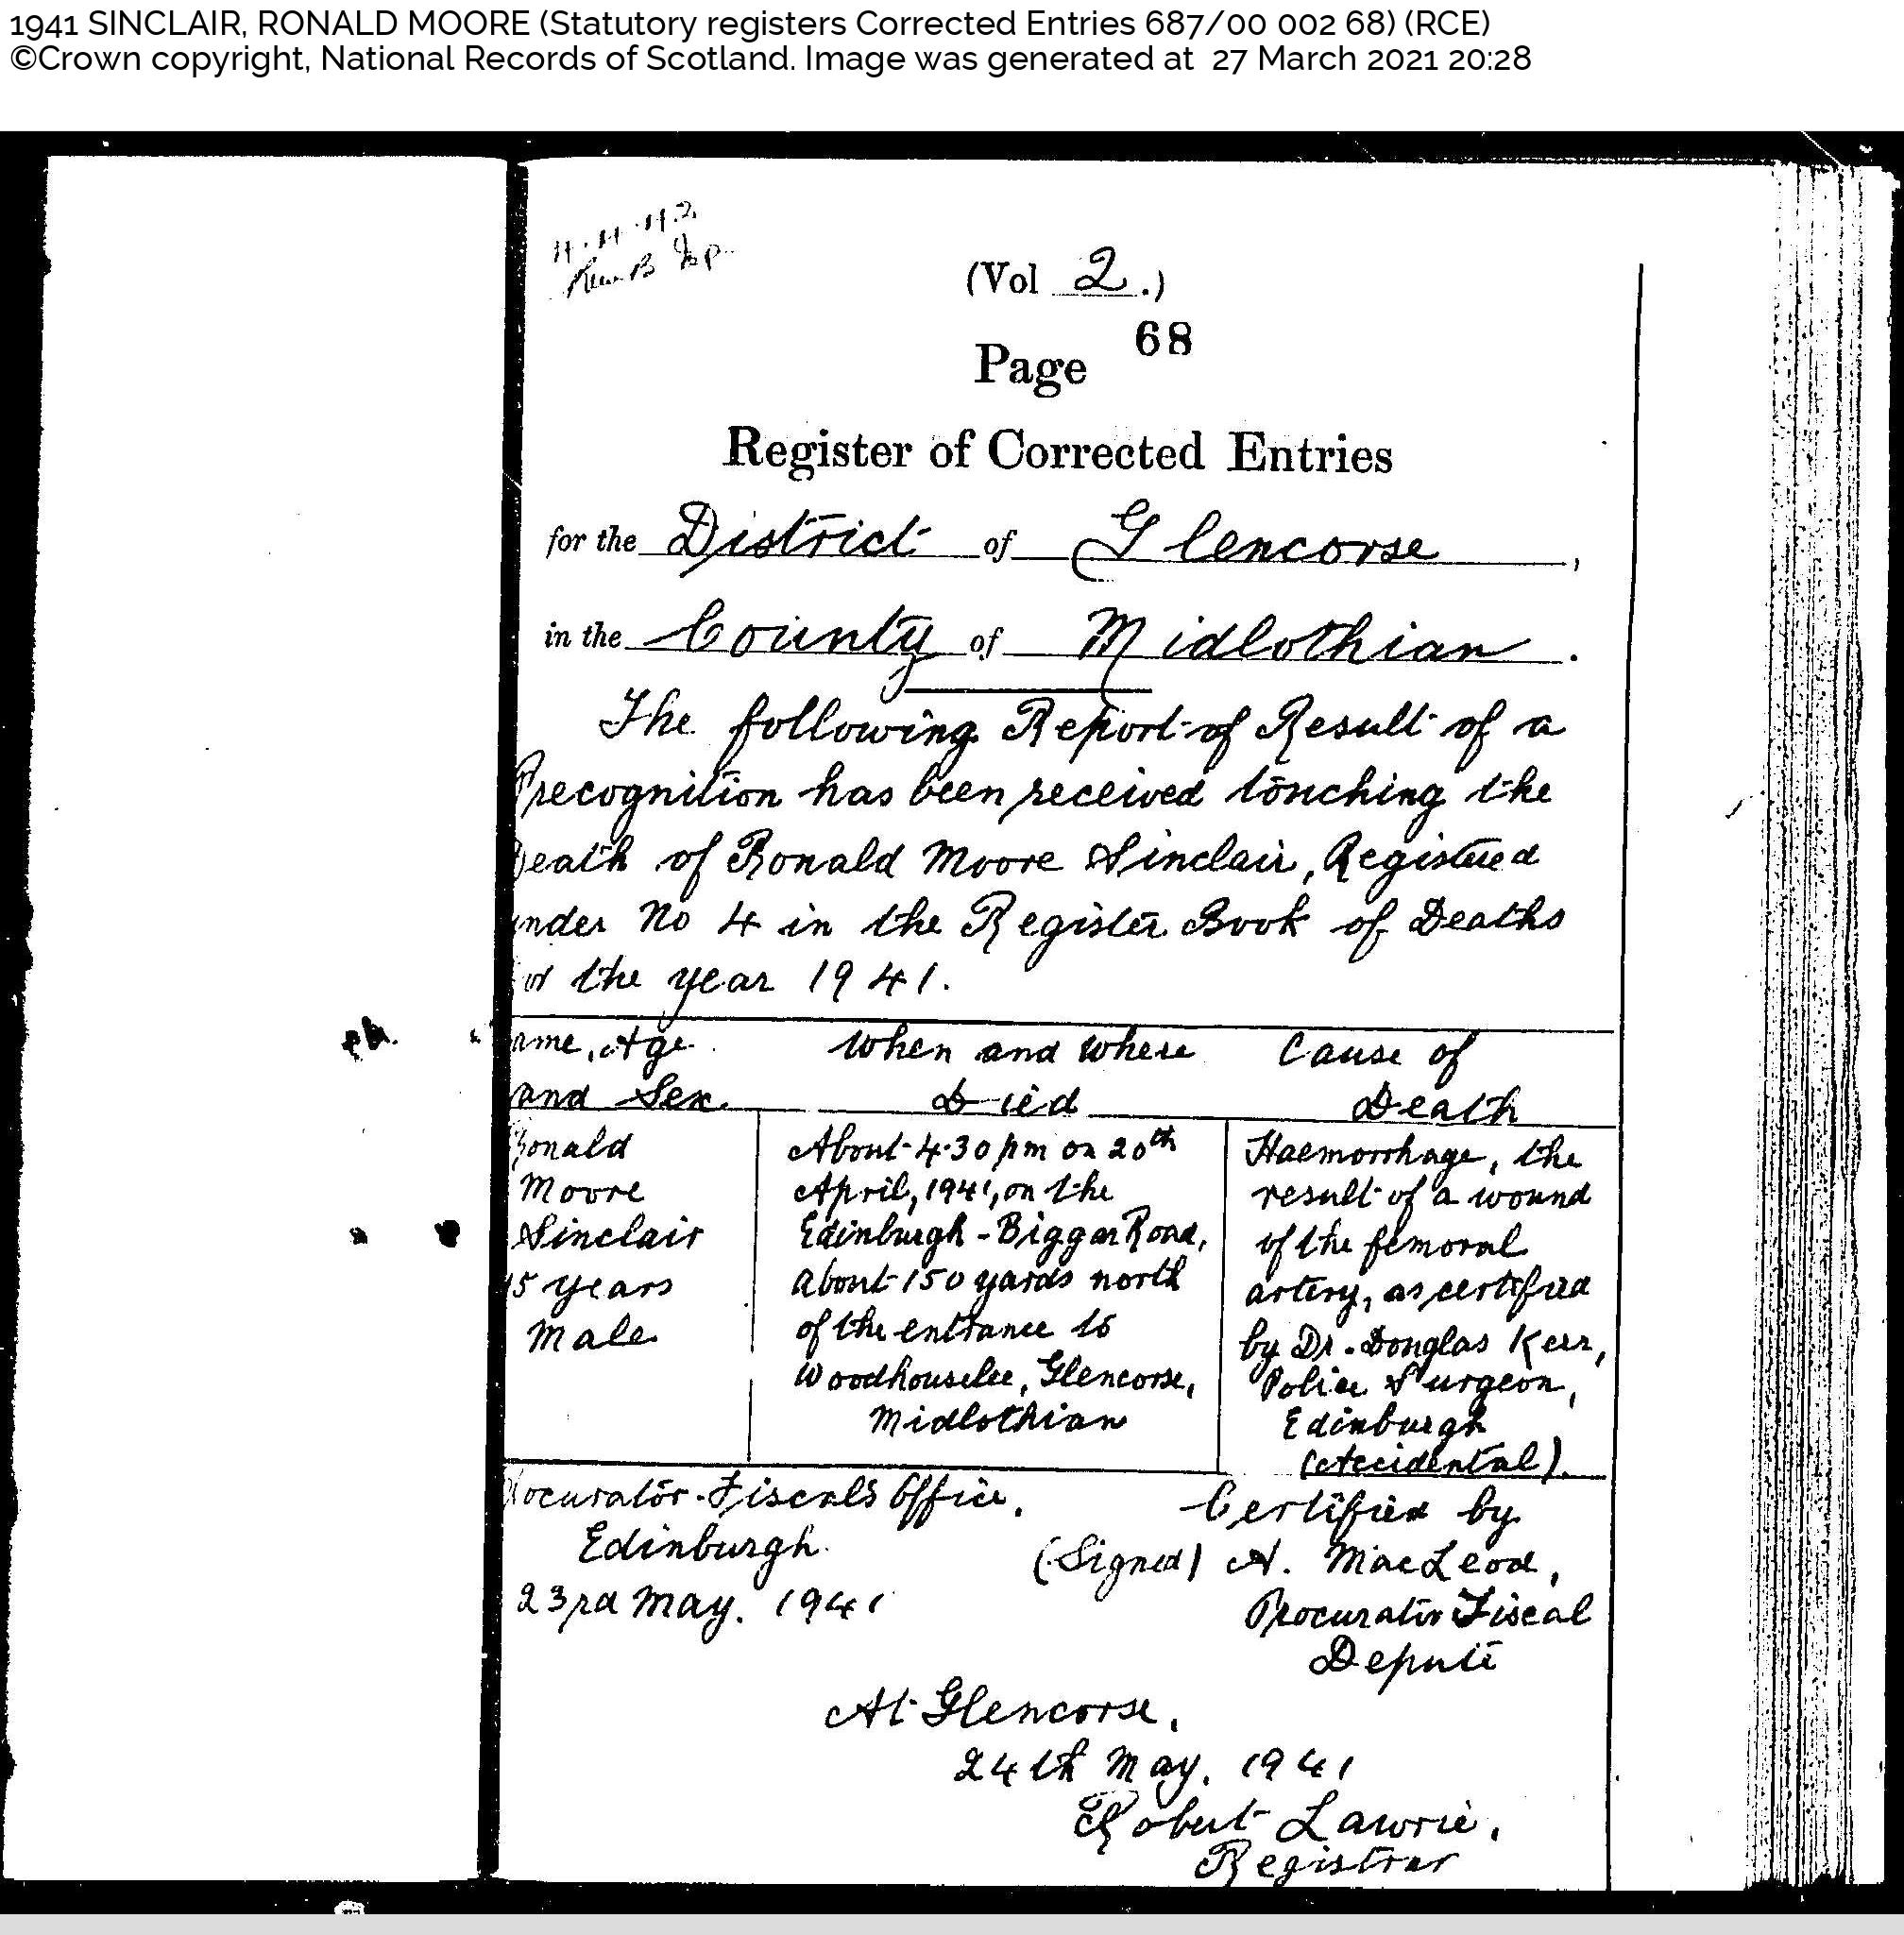 1941 SINCLAIR, RONALD MOORE (Statutory registers Corrected Entries 687/00 002 68) (RCE)
©Crown copyright, National Records of Scotland. Image was generated at 27 March 2021 20:28
(Vol 2.)
68
Page
Register of Corrected Entries
for the District of Glencorse,
in the County of Midlothian.
The following Report of Result of a
Precognition has been received touching the
Death of Ronald Moore Sinclair, Registered
under No 4 in the Register Book of Deaths
for the year 1941.
Name, Age
and Sex.
When and where
Died
Cause of
Death
Ronald
Moore
Sinclair
15 years
Male
About 4.30 pm on 20th
April, 1941, on the
Edinburgh - Biggar Road,
about 150 yards north
of the entrance to
Woodhouselee, Glencorse,
Midlothian
Haemorrhage, the
result of a wound
of the femoral
artery, as certified
by Dr. Douglas Kerr,
Police Surgeon,
Edinburgh
(Accidental).
Procurator-Fiscal's Office.
Edinburgh.
23rd May. 1941
Certified by
(Signed) A. MacLeod,
Procurator Fiscal
Depute
At Glencorse,
24th May. 1941
Robert Lawrie,
Registrar